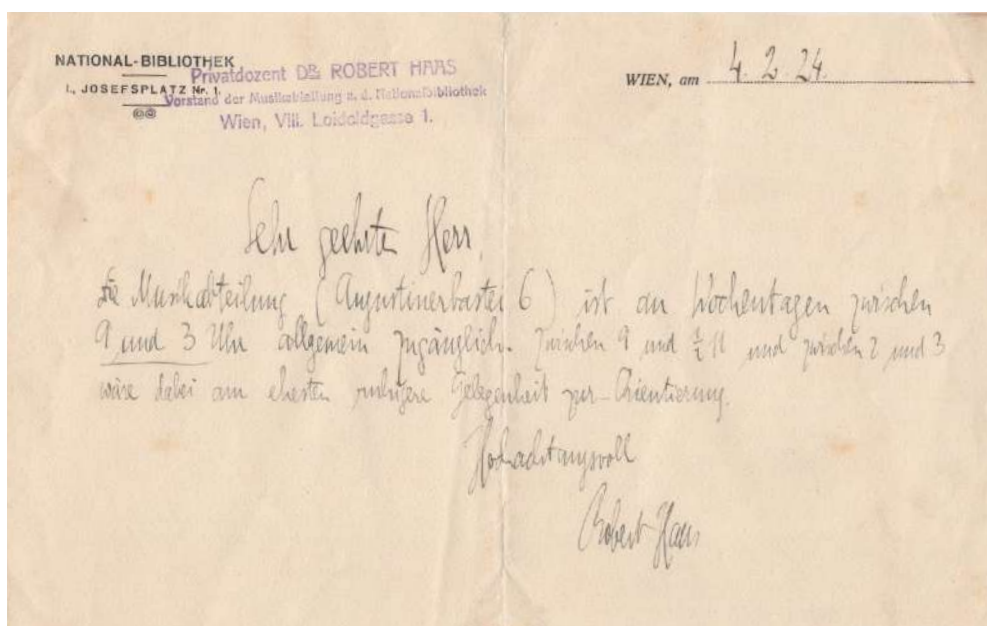 NATIONAL-BIBLIOTHEK
I., JOSEFSPLATZ Nr. 1.
Privatdozent DR. ROBERT HAAS
Vorstand der Musikabteilung a. d. Nationalbibliothek
Wien, VIII. Loidoldgasse 1.
WIEN, am 4. 2. 24.
Sehr geehrter Herr,
Die Musikabteilung (Augustinerbastei 6) ist an Wochentagen zwischen
9 und 3 Uhr allgemein zugänglich. Zwischen 9 und ½ 11 und zwischen 2 und 3
wäre dabei am ehesten ruhigere Gelegenheit zur Orientierung.
Hochachtungsvoll
Robert Haas